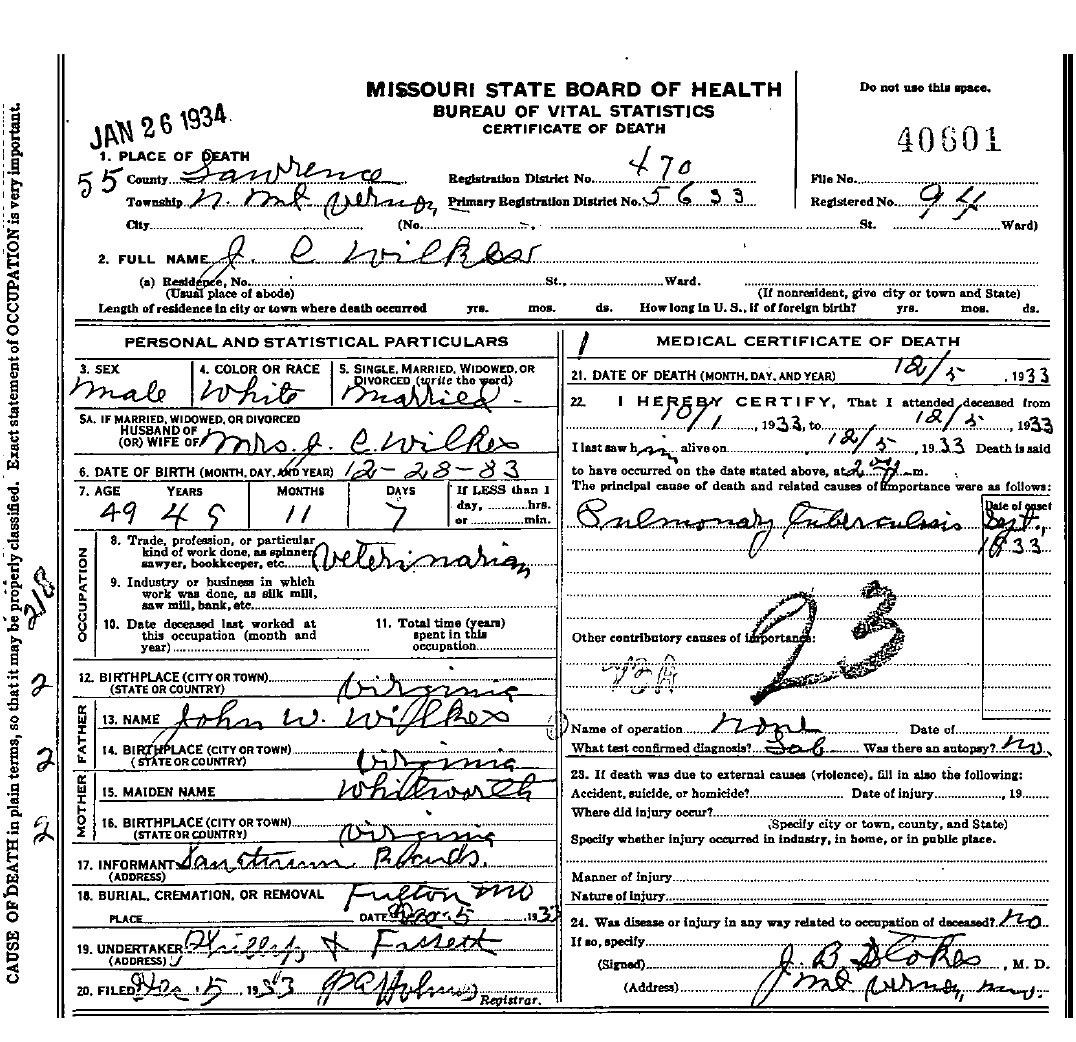 MISSOURI STATE BOARD OF HEALTH
BUREAU OF VITAL STATISTICS
CERTIFICATE OF DEATH
Do not use this space.
JAN 26 1934
40601
1. PLACE OF DEATH
55 County Lawrence Registration District No. 470 File No.
Township N. Mt Vernon, Primary Registration District No. 5633 Registered No. 94
City (No. St. Ward)
2. FULL NAME J. C Wilkes
(a) Residence, No. St., Ward.
(Usual place of abode) (If nonresident, give city or town and State)
Length of residence in city or town where death occurred yrs. mos. ds. How long in U. S., if of foreign birth? yrs. mos. ds.
PERSONAL AND STATISTICAL PARTICULARS
3. SEX 4. COLOR OR RACE 5. SINGLE, MARRIED, WIDOWED, OR
DIVORCED (write the word)
Male White Married
5A. IF MARRIED, WIDOWED, OR DIVORCED
HUSBAND OF
(OR) WIFE OF Mrs. J. C. Wilkes
6. DATE OF BIRTH (MONTH, DAY, AND YEAR) 12-28-83
7. AGE YEARS MONTHS DAYS If LESS than 1
day, hrs.
or min.
49 49 11 7
OCCUPATION
8. Trade, profession, or particular
kind of work done, as spinner,
sawyer, bookkeeper, etc. Veterinarian
9. Industry or business in which
work was done, as silk mill,
saw mill, bank, etc.
10. Date deceased last worked at
this occupation (month and
year)
11. Total time (years)
spent in this
occupation
12. BIRTHPLACE (CITY OR TOWN)
(STATE OR COUNTRY) Virginia
FATHER
13. NAME John W. Wilkes
14. BIRTHPLACE (CITY OR TOWN)
(STATE OR COUNTRY) Virginia
MOTHER
15. MAIDEN NAME Whitworth
16. BIRTHPLACE (CITY OR TOWN)
(STATE OR COUNTRY) Virginia
17. INFORMANT
(ADDRESS)
18. BURIAL, CREMATION, OR REMOVAL Fulton Mo
PLACE DATE Dec. 5 1933
19. UNDERTAKER & Fassett
(ADDRESS)
20. FILED Dec 5, 1933
Registrar.
1 MEDICAL CERTIFICATE OF DEATH
21. DATE OF DEATH (MONTH, DAY, AND YEAR) 12/5, 1933
22. I HEREBY CERTIFY, That I attended deceased from
10/1, 1933, to 12/5, 1933
I last saw him alive on 12/5, 1933 Death is said
to have occurred on the date stated above, at m.
The principal cause of death and related causes of importance were as follows:
Date of onset
Pulmonary tuberculosis Sept.,
1933
23
Other contributory causes of importance:
Name of operation none Date of
What test confirmed diagnosis? Lab Was there an autopsy? no.
23. If death was due to external causes (violence), fill in also the following:
Accident, suicide, or homicide? Date of injury, 19
Where did injury occur?
(Specify city or town, county, and State)
Specify whether injury occurred in industry, in home, or in public place.
Manner of injury
Nature of injury
24. Was disease or injury in any way related to occupation of deceased? no
If so, specify
(Signed) J. B Stokes, M. D.
(Address) Mt Vernon, Mo.
CAUSE OF DEATH in plain terms, so that it may be properly classified. Exact statement of OCCUPATION is very important.
218
2
2
2